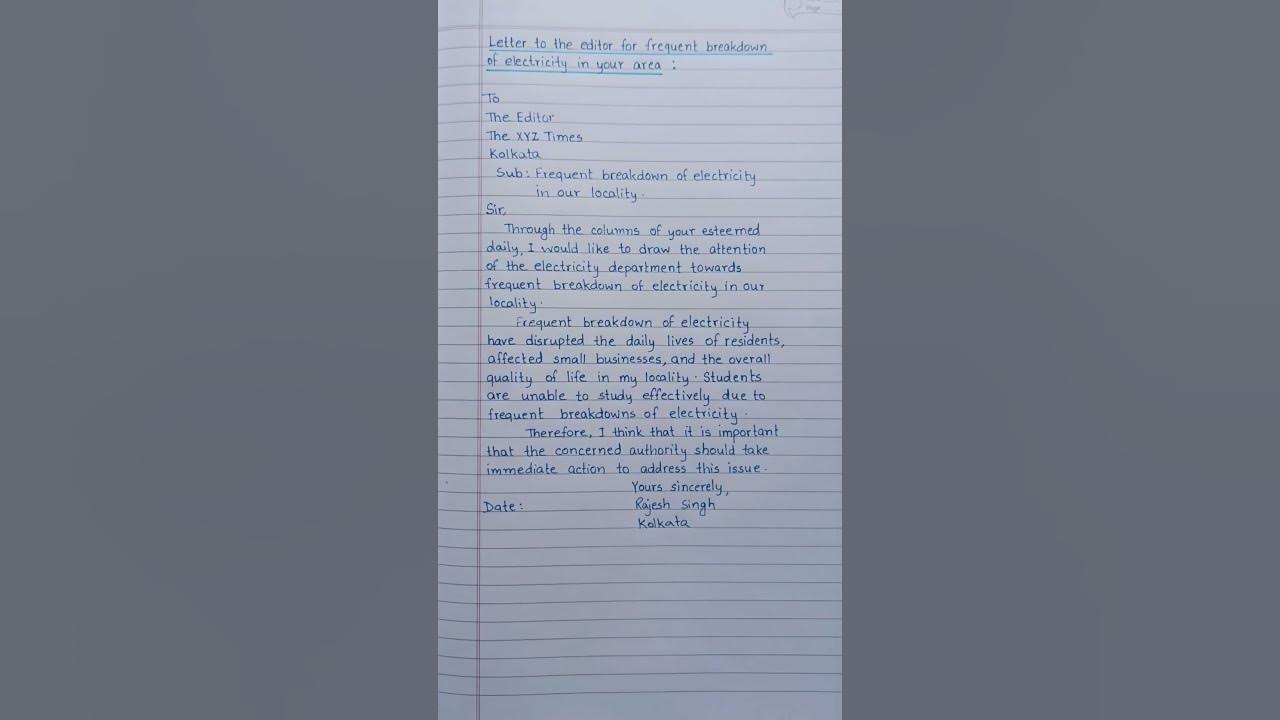 Page
Letter to the editor for frequent breakdown
of electricity in your area :
To
The Editor
The XYZ Times
Kolkata
Sub : Frequent breakdown of electricity
in our locality.
Sir,
Through the columns of your esteemed
daily, I would like to draw the attention
of the electricity department towards
frequent breakdown of electricity in our
locality.
Frequent breakdown of electricity
have disrupted the daily lives of residents,
affected small businesses, and the overall
quality of life in my locality. Students
are unable to study effectively due to
frequent breakdowns of electricity.
Therefore, I think that it is important
that the concerned authority should take
immediate action to address this issue.
Yours sincerely,
Date : Rajesh Singh
Kolkata